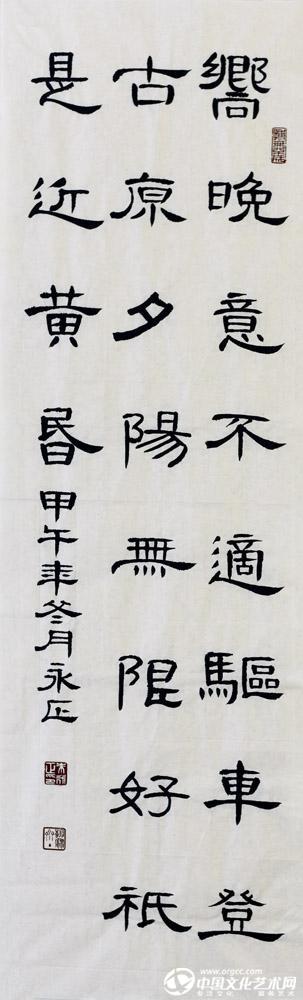 嚮晚意不適驅車登
古原夕陽無限好祇
是近黄昏甲午年冬月永正
www.orgcc.com
中国文化艺术网